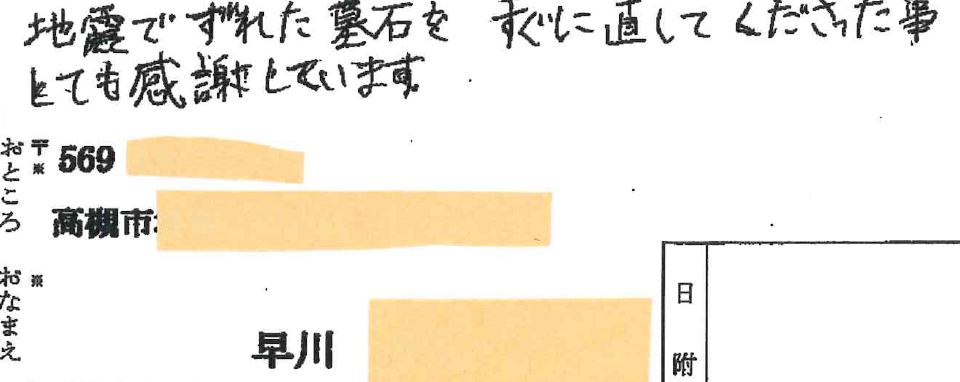 地震でずれた墓石を すぐに直してくださった事
とても感謝しています
〒※ 569
おところ
高槻市
※
おなまえ
早川
日附